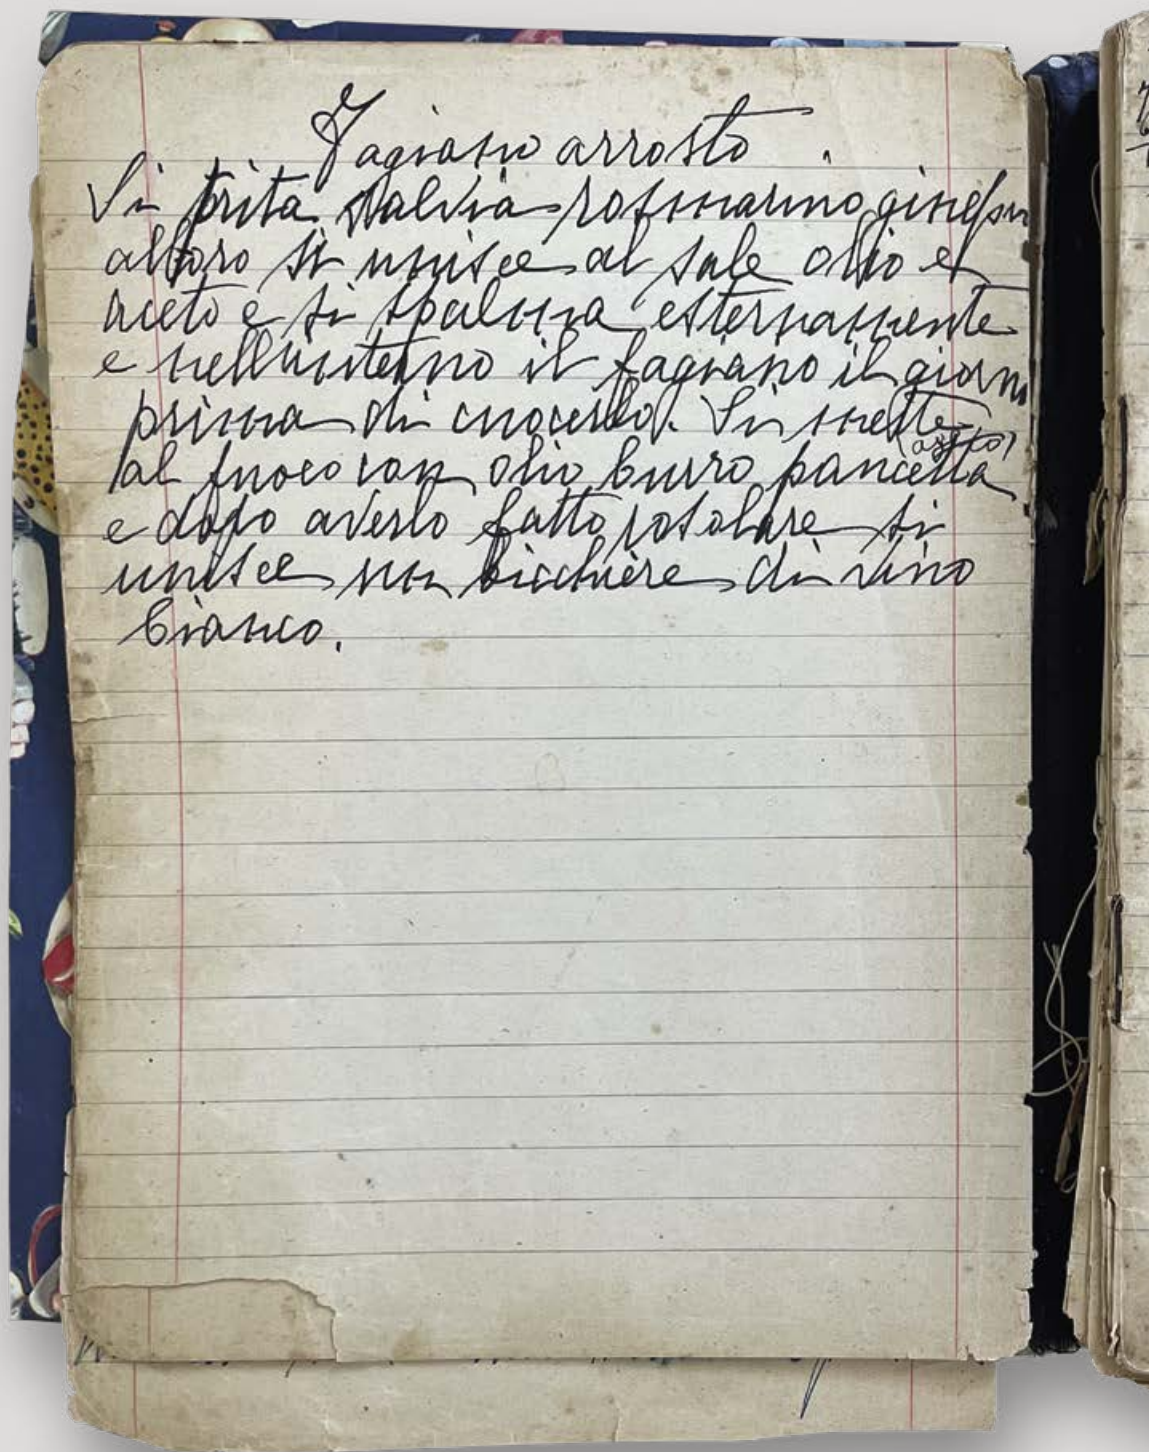 Fagiano arrosto.
Si trita salvia rosmarino ginepr
alloro si unisce al sale olio e
aceto e si spalma esternamente
e nell'interno il fagiano il giorn
prima di cuocerlo. Si mette
al fuoco con olio burro pancetta
e dopo averlo fatto rosolare si
unisce un bicchiere di vino
bianco.